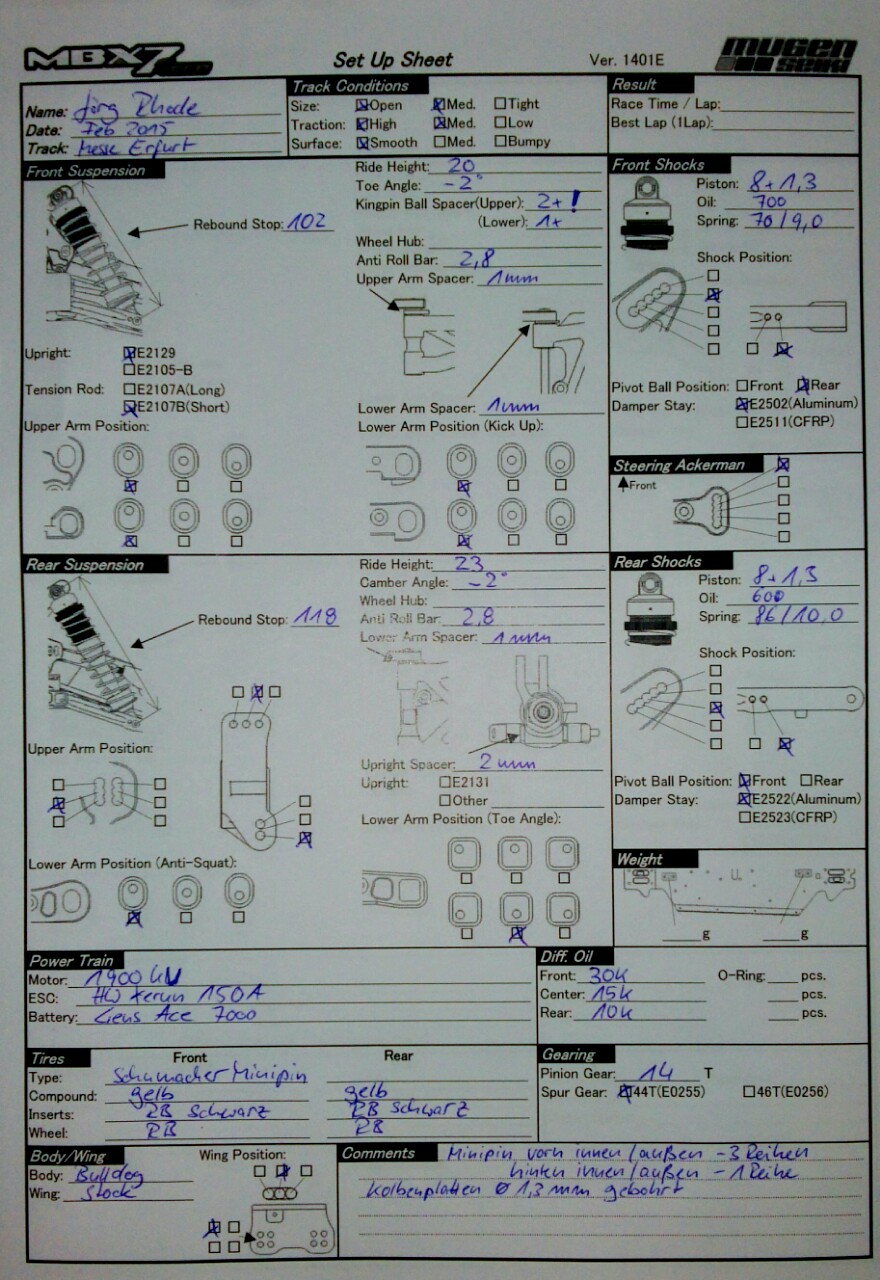 MBX7
Set Up Sheet
Ver. 1401E
MUGEN SEIKI
Name: Jörg Rhode
Date: Feb 2015
Track: Messe Erfurt
Track Conditions
Size: Open Med. Tight
Traction: High Med. Low
Surface: Smooth Med. Bumpy
Result
Race Time / Lap:
Best Lap (1Lap):
Front Suspension
Rebound Stop: 102
Upright: E2129
E2105-B
Tension Rod: E2107A(Long)
E2107B(Short)
Upper Arm Position:
Ride Height: 20
Toe Angle: -2°
Kingpin Ball Spacer(Upper): 2+!
(Lower): 1+
Wheel Hub:
Anti Roll Bar: 2,8
Upper Arm Spacer: 1mm
Lower Arm Spacer: 1mm
Lower Arm Position (Kick Up):
Front Shocks
Piston: 8+1,3
Oil: 700
Spring: 70/9,0
Shock Position:
Pivot Ball Position: Front Rear
Damper Stay: E2502(Aluminum)
E2511(CFRP)
Steering Ackerman
Front
Rear Suspension
Rebound Stop: 118
Upper Arm Position:
Lower Arm Position (Anti-Squat):
Ride Height: 23
Camber Angle: -2°
Wheel Hub:
Anti Roll Bar: 2,8
Lower Arm Spacer: 1mm
Upright Spacer: 2mm
Upright: E2131
Other
Lower Arm Position (Toe Angle):
Rear Shocks
Piston: 8+1,3
Oil: 600
Spring: 86/10,0
Shock Position:
Pivot Ball Position: Front Rear
Damper Stay: E2522(Aluminum)
E2523(CFRP)
Weight
g g
Power Train
Motor: 1900 kV
ESC: HW Xerun 150A
Battery: Gens Ace 7000
Diff. Oil
Front: 30k O-Ring: pcs.
Center: 15k pcs.
Rear: 10k pcs.
Tires
Front Rear
Type: Schumacher Minipin
Compound: gelb gelb
Inserts: RB Schwarz RB Schwarz
Wheel: RB RB
Gearing
Pinion Gear: 14 T
Spur Gear: 44T(E0255) 46T(E0256)
Body/Wing
Body: Bulldog
Wing: Stock
Wing Position:
Comments
Minipin vorn innen/außen -3 Reihen
hinten innen/außen -1 Reihe
Kolbenplatten Ø 1,3 mm gebohrt